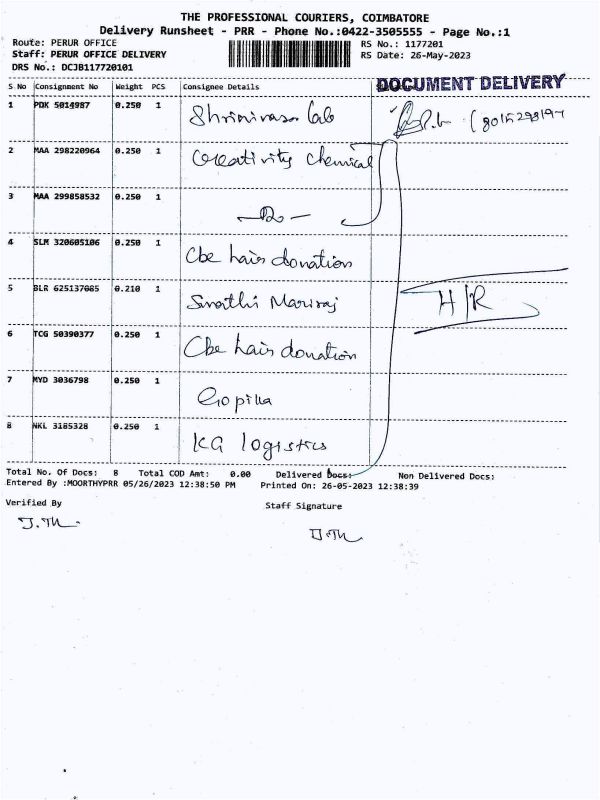 THE PROFESSIONAL COURIERS, COIMBATORE
Delivery Runsheet - PRR - Phone No.:0422-3505555 - Page No.:1
Route: PERUR OFFICE RS No.: 1177201
Staff: PERUR OFFICE DELIVERY RS Date: 26-May-2023
DRS No.: DCJB117720101
DOCUMENT DELIVERY
S No Consignment No Weight PCS Consignee Details
1 PDK 5014987 0.250 1 Shrinivasa Lab
2 MAA 298220964 0.250 1 Creativity Chemical
3 MAA 299858532 0.250 1
4 SLM 320605106 0.250 1 Cbe hair donation
5 BLR 625137085 0.210 1 Swathi Mariraj
H/R
6 TCG 50390377 0.250 1 Cbe hair donation
7 MYD 3036798 0.250 1 Gopika
8 NKL 3185328 0.250 1 KG logistics
Total No. Of Docs: 8 Total COD Amt: 0.00 Delivered Docs: Non Delivered Docs:
Entered By :MOORTHYPRR 05/26/2023 12:38:50 PM Printed On: 26-05-2023 12:38:39
Verified By Staff Signature